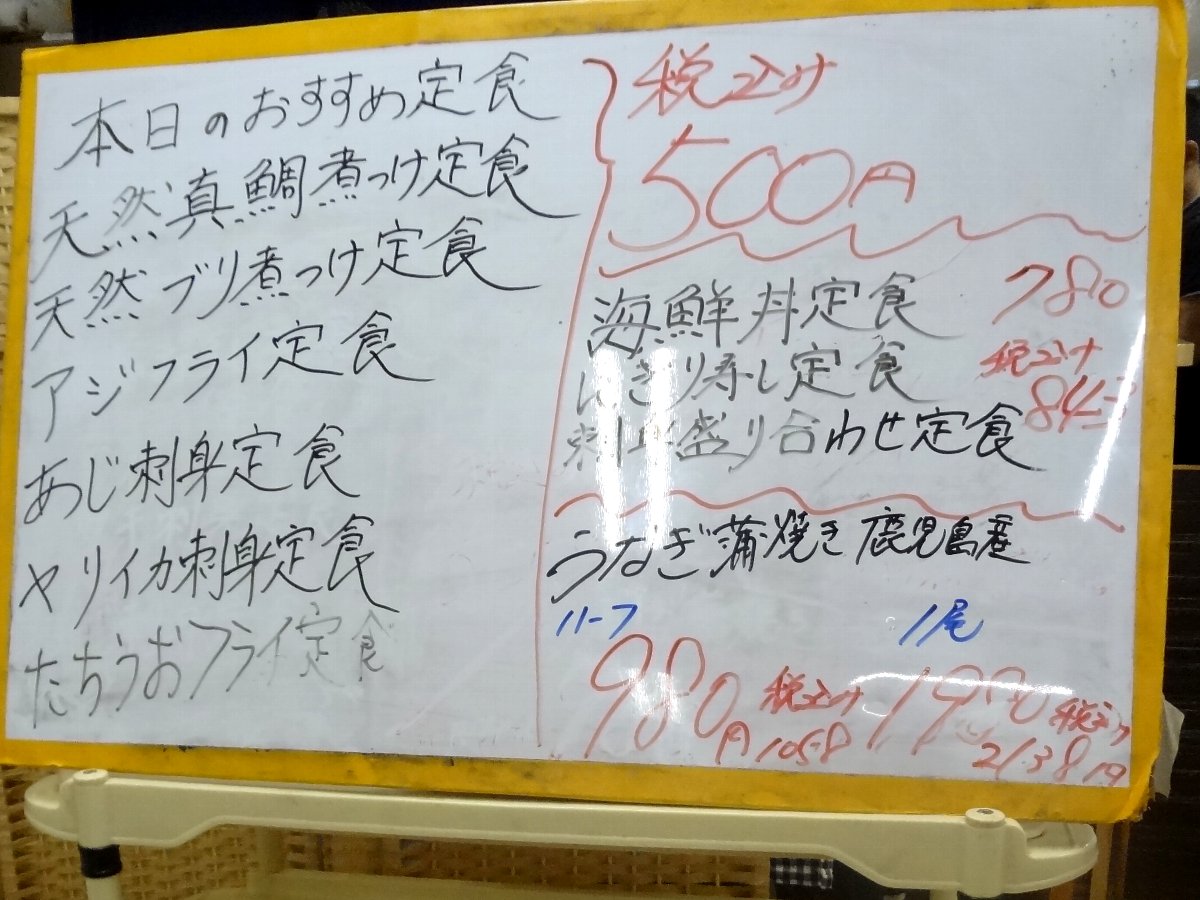 本日のおすすめ定食
天然真鯛煮つけ定食
天然ブリ煮つけ定食
アジフライ定食
あじ刺身定食
ヤリイカ刺身定食
たちうおフライ定食
税込み
500円
海鮮丼定食
にぎり寿し定食
盛り合わせ定食
780
税込み
843
うなぎ蒲焼き 鹿児島産
ハーフ 1尾
980円 税込み 1058
1980 税込み 2138円